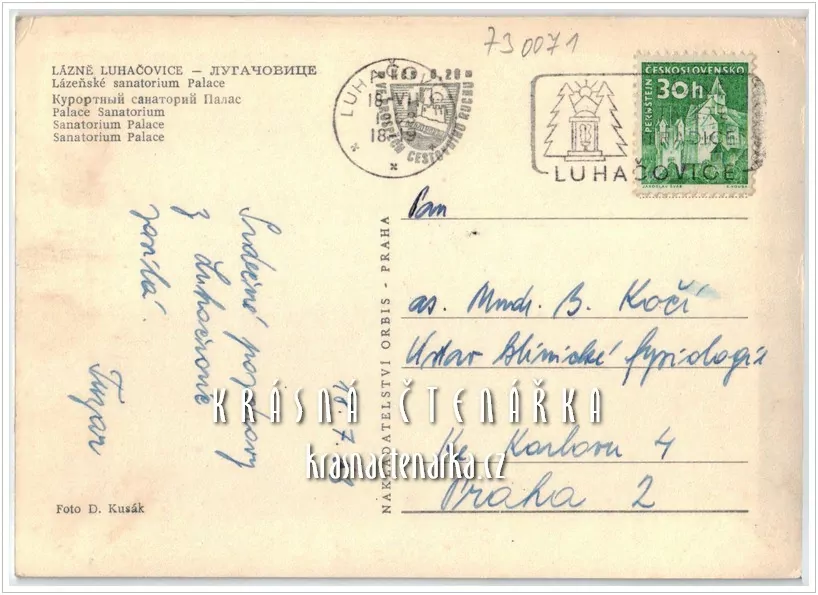 730071
LÁZNĚ LUHAČOVICE — ЛУГАЧОВИЦЕ
Lázeňské sanatorium Palace
Курортный санаторий Палас
Palace Sanatorium
Sanatorium Palace
Sanatorium Palace
LUHAČO
Kčs 0,20
18-VII
18-19
CESTOVNÍHO RUCHU
LUHAČOVICE
ČESKOSLOVENSKO
PERNŠTEJN
30h
JAROSLAV ŠVÁB
Srdečné pozdravy
z Luhačovic
posílá
18. 7.
NAKLADATELSTVÍ ORBIS - PRAHA
Pan
as. Mudr. B. Kočí
Ústav klinické fysiologie
Ke Karlovu 4
Praha 2
KRÁSNÁ ČTENÁŘKA
krasnactenarka.cz
Foto D. Kusák